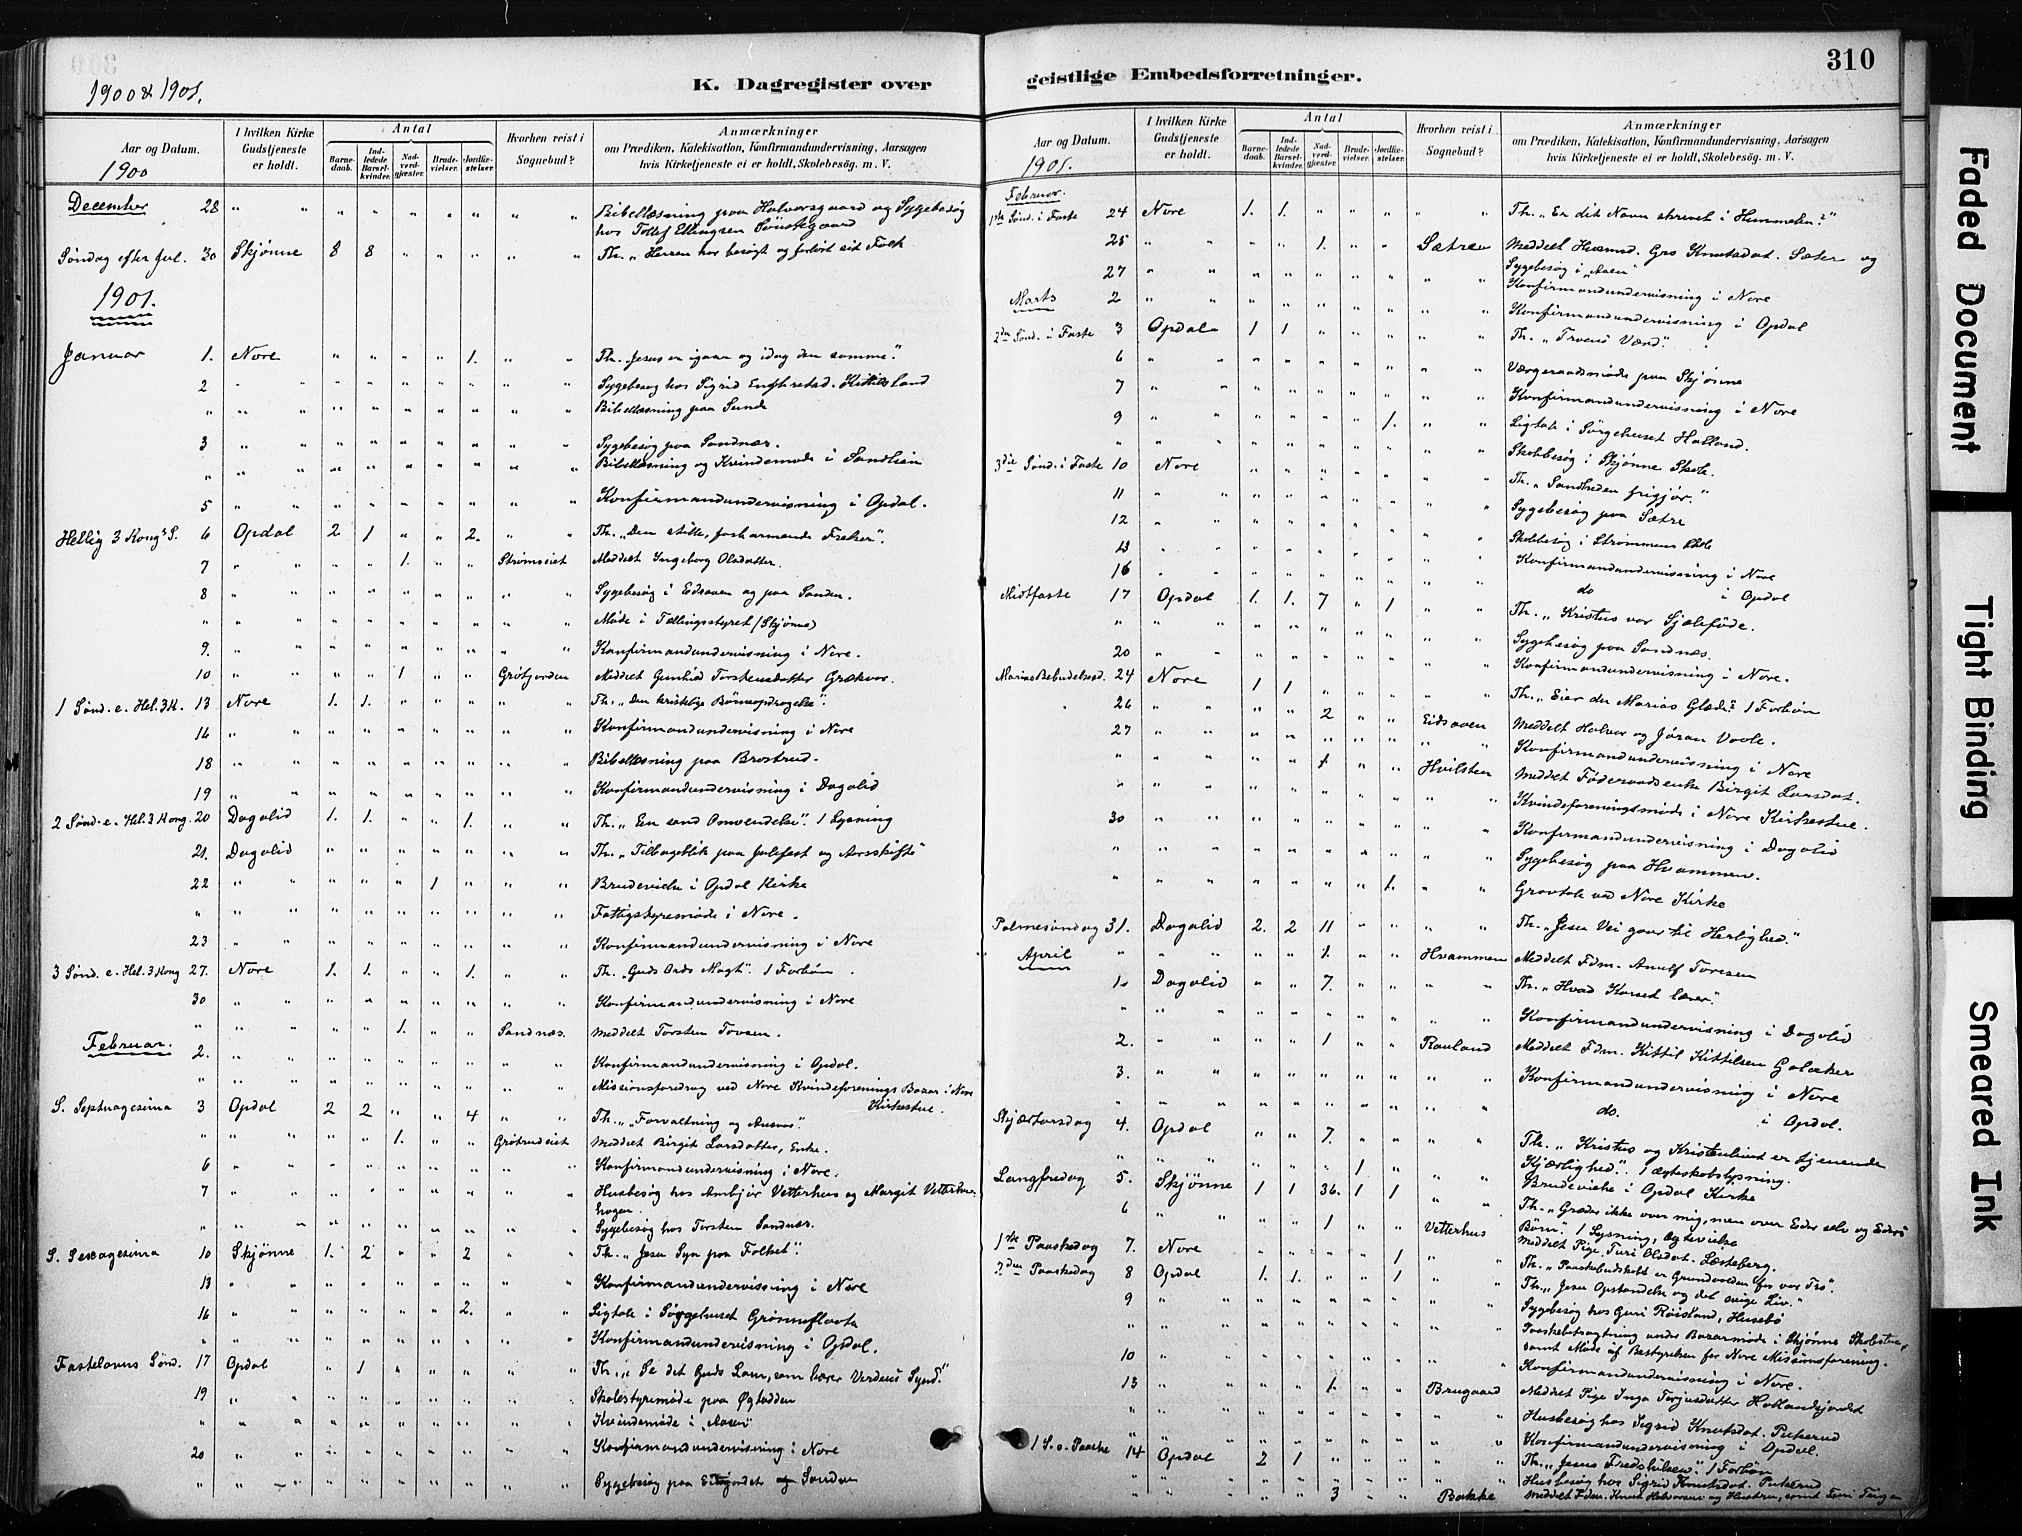 1900 & 1901.
K. Dagregister over
Aar og Datum.
1900
I hvilken Kirke Gudstjeneste er holdt.
Antal
Barnedaab.
Indledede Barselkvinder.
Nadverdgjæster.
Brudevielser.
Jordfæstelser.
Hvorhen reist i Sognebud?
Anmærkninger
om Prædiken, Katekisation, Konfirmandundervisning, Aarsagen
hvis Kirketjeneste ei er holdt, Skolebesøg. m. V.
December 28 " " " " " " " " " Bibellæsning paa Halvorsgaard og Sygebesøg
hos Tollef Ellingsen
Søndag efter Jul. 30 Skjønne 8 8 " " " " " Th. „Herren har besøgt og forløst sit Folk
1901.
Januar 1. Nore " " " " 1. " " Th. „Jesus er igaar og idag den samme."
2 " " " " " " " " " Sygebesøg hos Sigrid
" " " " " " " " " " Bibellæsning paa Sunde
3 " " " " " " " " " Sygebesøg paa Sandnæs.
" " " " " " " " " " Bibellæsning og Kvindemøde i
5 " " " " " " " " " Konfirmandundervisning i Opdal.
Hellig 3 Kong's S. 6 Opdal 2 1 " " 2. " " Th. „Den stille, forbarmende Frelser".
7 " " " " 1. " " Strømseiet Meddelt Ingeborg Olsdatter.
8 " " " " " " " " " Sygebesøg i Eidsaaen og paa Sanden.
" " " " " " " " " " Møde i Tællingsstyret (Skjønne)
9. " " " " " " " " " Konfirmandundervisning i Nore.
10 " " " " 1 " " Grøtjorden Meddelt Gunhild Torstensdatter
1 Sønd. e. Hel. 3 K. 13 Nore 1. 1. " " " " " Th. „Den kristelige Børneopdragelse".
" " " " " " " " " Konfirmandundervisning i Nore
18 " " " " " " " " " Bibellæsning paa Brostrud.
19 " " " " " " " " " Konfirmandundervisning i Dagalid
2 Sønd. e. Hel. 3 Kong. 20 Dagalid 1. 1. " " 1. " " Th. „En sand Omvendelse". 1 Lysning
21. Dagalid " " " " " " " Th. „Tilbageblik paa Julefest og Aarsskifte"
22 " " " " " 1 " " " Brudevielse i Opdal Kirke
" " " " " " " " " " Fattigstyremøde i Nore.
23 " " " " " " " " " Konfirmandundervisning i Nore
3 Sønd. e. Hel. 3 Kong 27. Nore 1. 1. " " 1. " " Th. „Guds Ords Magt". 1 Forbøn.
30 " " " " " " " " " Konfirmandundervisning i Nore
" " " " " 1. " " Sandnæs. Meddelt Torsten
Februar. 2. " " " " " " " " " Konfirmandundervisning i Opdal.
" " " " " " " " " " Missionsforedrag ved Nore Kvindeforenings Bazar i Nore
Kirkestue.
S. Septuagesima 3 Opdal 2 2 " " 4 " " Th. „Forvaltning og Ansvar".
" " " " " 1. " " Grøtrudeiet Meddelt Birgit Larsdatter, Enke.
6 " " " " " " " " " Konfirmandundervisning i Nore.
7 " " " " " " " " " Husbesøg hos Ambjør Vetterhus og Margit Vetterhus-
hagen.
" " " " " " " " " " Sygebesøg hos Torsten Sandnæs.
S. Sexagesima 10 Skjønne 1. 2 " " 2 " " Th. „Jesu Syn paa Folket".
13 " " " " " " " " " Konfirmandundervisning i Nore
16 " " " " " " 2. " " Ligtale i Sørgehuset Grønneflaata
" " " " " " " " " " Konfirmandundervisning i Opdal.
Fastelavns Sønd. 17 Opdal " 1 " " " " " Th. „Se det Guds Lam, som bærer Verdens Synd."
19 " " " " " " " " " Skolestyremøde paa Øgtadden
" " " " " " " " " " Kvindemøde i „Aasen"
20 " " " " " " " " " Konfirmandundervisning i Nore
" " " " " " " " " " Sygebesøg paa
geistlige Embedsforretninger.
310
Aar og Datum.
1901.
I hvilken Kirke Gudstjeneste er holdt.
Antal
Barnedaab.
Indledede Barselkvinder.
Nadverdgjæster.
Brudevielser.
Jordfæstelser.
Hvorhen reist i Sognebud?
Anmærkninger
om Prædiken, Katekisation, Konfirmandundervisning, Aarsagen
hvis Kirketjeneste ei er holdt, Skolebesøg. m. V.
Februar.
1ste Sønd. i Faste 24 Nore 1. 1. " " " " " Th. „Er dit Navn skrevet i Himmelen?"
25 " " " " 1. " " Sætre Meddelt Husmd. Gro Knutsdat. Sæter og
Sygebesøg i „Aasen"
27 " " " " " " " " " Konfirmandundervisning i Nore
Marts 2 " " " " " " " " " Konfirmandundervisning i Opdal
2den Sønd. i Faste 3 Opdal 1 1 " " " " " Th. „Troens Værd".
6 " " " " " " " " " Værgeraadsmøde paa Skjønne
7 " " " " " " " " " Konfirmandundervisning i Nore
9 " " " " " " 1. " " Ligtale i Sørgehuset Halland.
" " " " " " " " " " Skolebesøg i Skjønne Skole.
3die Sønd. i Faste 10 Nore " " " " " " " Th. „Sandheden frigjør."
11 " " " " " " " " " Sygebesøg paa Sætre
12 " " " " " " " " " Skolebesøg i Strømmens Skole
13 " " " " " " " " " Konfirmandundervisning i Nore
16 " " " " " " " " " do i Opdal
Midtfaste 17 Opdal 1. 1. 7 " 1 " " Th. „Kristus vor Sjæleføde.
" " " " " " " " " " Sygebesøg paa Sandnæs.
20 " " " " " " " " " Konfirmandundervisning i Nore.
Marias Bebudelsesd. 24 Nore 1 1 " " " " " Th. „Eier du Marias Glæde? 1 Forbøn
26 " " " " 2 " " Eidsaaen Meddelt Halvor og Jøran
27 " " " " " " " " " Konfirmandundervisning i Nore
" " " " " 1 " " Hvilsten Meddelt Føderaadsenke Birgit Larsdat.
" " " " " " " " " " Kvindeforeningsmøde i Nore Kirkestue.
30 " " " " " " " " " Konfirmandundervisning i Dagalid
" " " " " " " " " " Sygebesøg paa Hvammen.
" " " " " " " 1. " " Gravtale ved Nore Kirke
Palmesøndag 31. Dagalid 2. 2 11 " " " " Th. „Jesu Vei gaar til Herlighed."
April " " " " " 1. " " Hvammen Meddelt Fdm. Anulf Toresen
1. Dagalid " " 7. " " " " Th. „Hvad Korset lærer".
" " " " " " " " " " Konfirmandundervisning i Dagalid
2. " " " " 1 " " Rauland Meddelt Fdm. Kittil Kittilsen
3. " " " " " " " " " Konfirmandundervisning i Nore
" " " " " " " " " " do. i Opdal.
Skjærtorsdag 4. Opdal " " 7. " " " " Th. „Kristus og Kristenlivet er tjenende
Kjærlighed". 1 Ægteskabslysning.
" " " " " " 1 " " " Brudevielse i Opdal Kirke
Langfredag 5. Skjønne 1 1 36. 1 1 " " Th. „Græder ikke over mig, men over Eder selv og Eders
Børn". 1 Lysning, Ægtevielse
6 " " " " 1 " " Vetterhus Meddelt Pige Turi Olsdat. Læsteberg.
1ste Paaskedag 7. Nore " " " " 1 " " Th. „Paaskebudskabet er Grundvolden for vor Tro".
2den Paaskedag 8 Opdal 1. 1. " " 1 " " Th. „Jesu Opstandelse og det evige Liv."
9 " " " " " " " " " Sygebesøg hos Guri Røisland, Husebø
" " " " " " " " " " Paaskebetragtning under Bazarmøde i Skjønne Skolestue,
samt Møde af Bestyrelsen for Nore Missionsforening.
10 " " " " " " " " " Konfirmandundervisning i Nore.
13 " " " " 1. " " Brugaard Meddelt Pige Inga Torjusdatter Hallandsjordet
" " " " " " " " " " Husbesøg hos Sigrid Knutsdat. Pukerud
" " " " " " " " " " Konfirmandundervisning i Opdal.
1 S. e. Paaske 14 Opdal 2 1 " " " " " Th. „Jesus Fredshilsen". 1 Forbøn
" " " " " " " " " " Husbesøg hos Sigrid Knutsdat. Pukerud
" " " " " 3 " " Bakke Meddelt Fdm. Knut Halvorsen og Hustru, samt Turi
Faded Document
Tight Binding
Smeared Ink